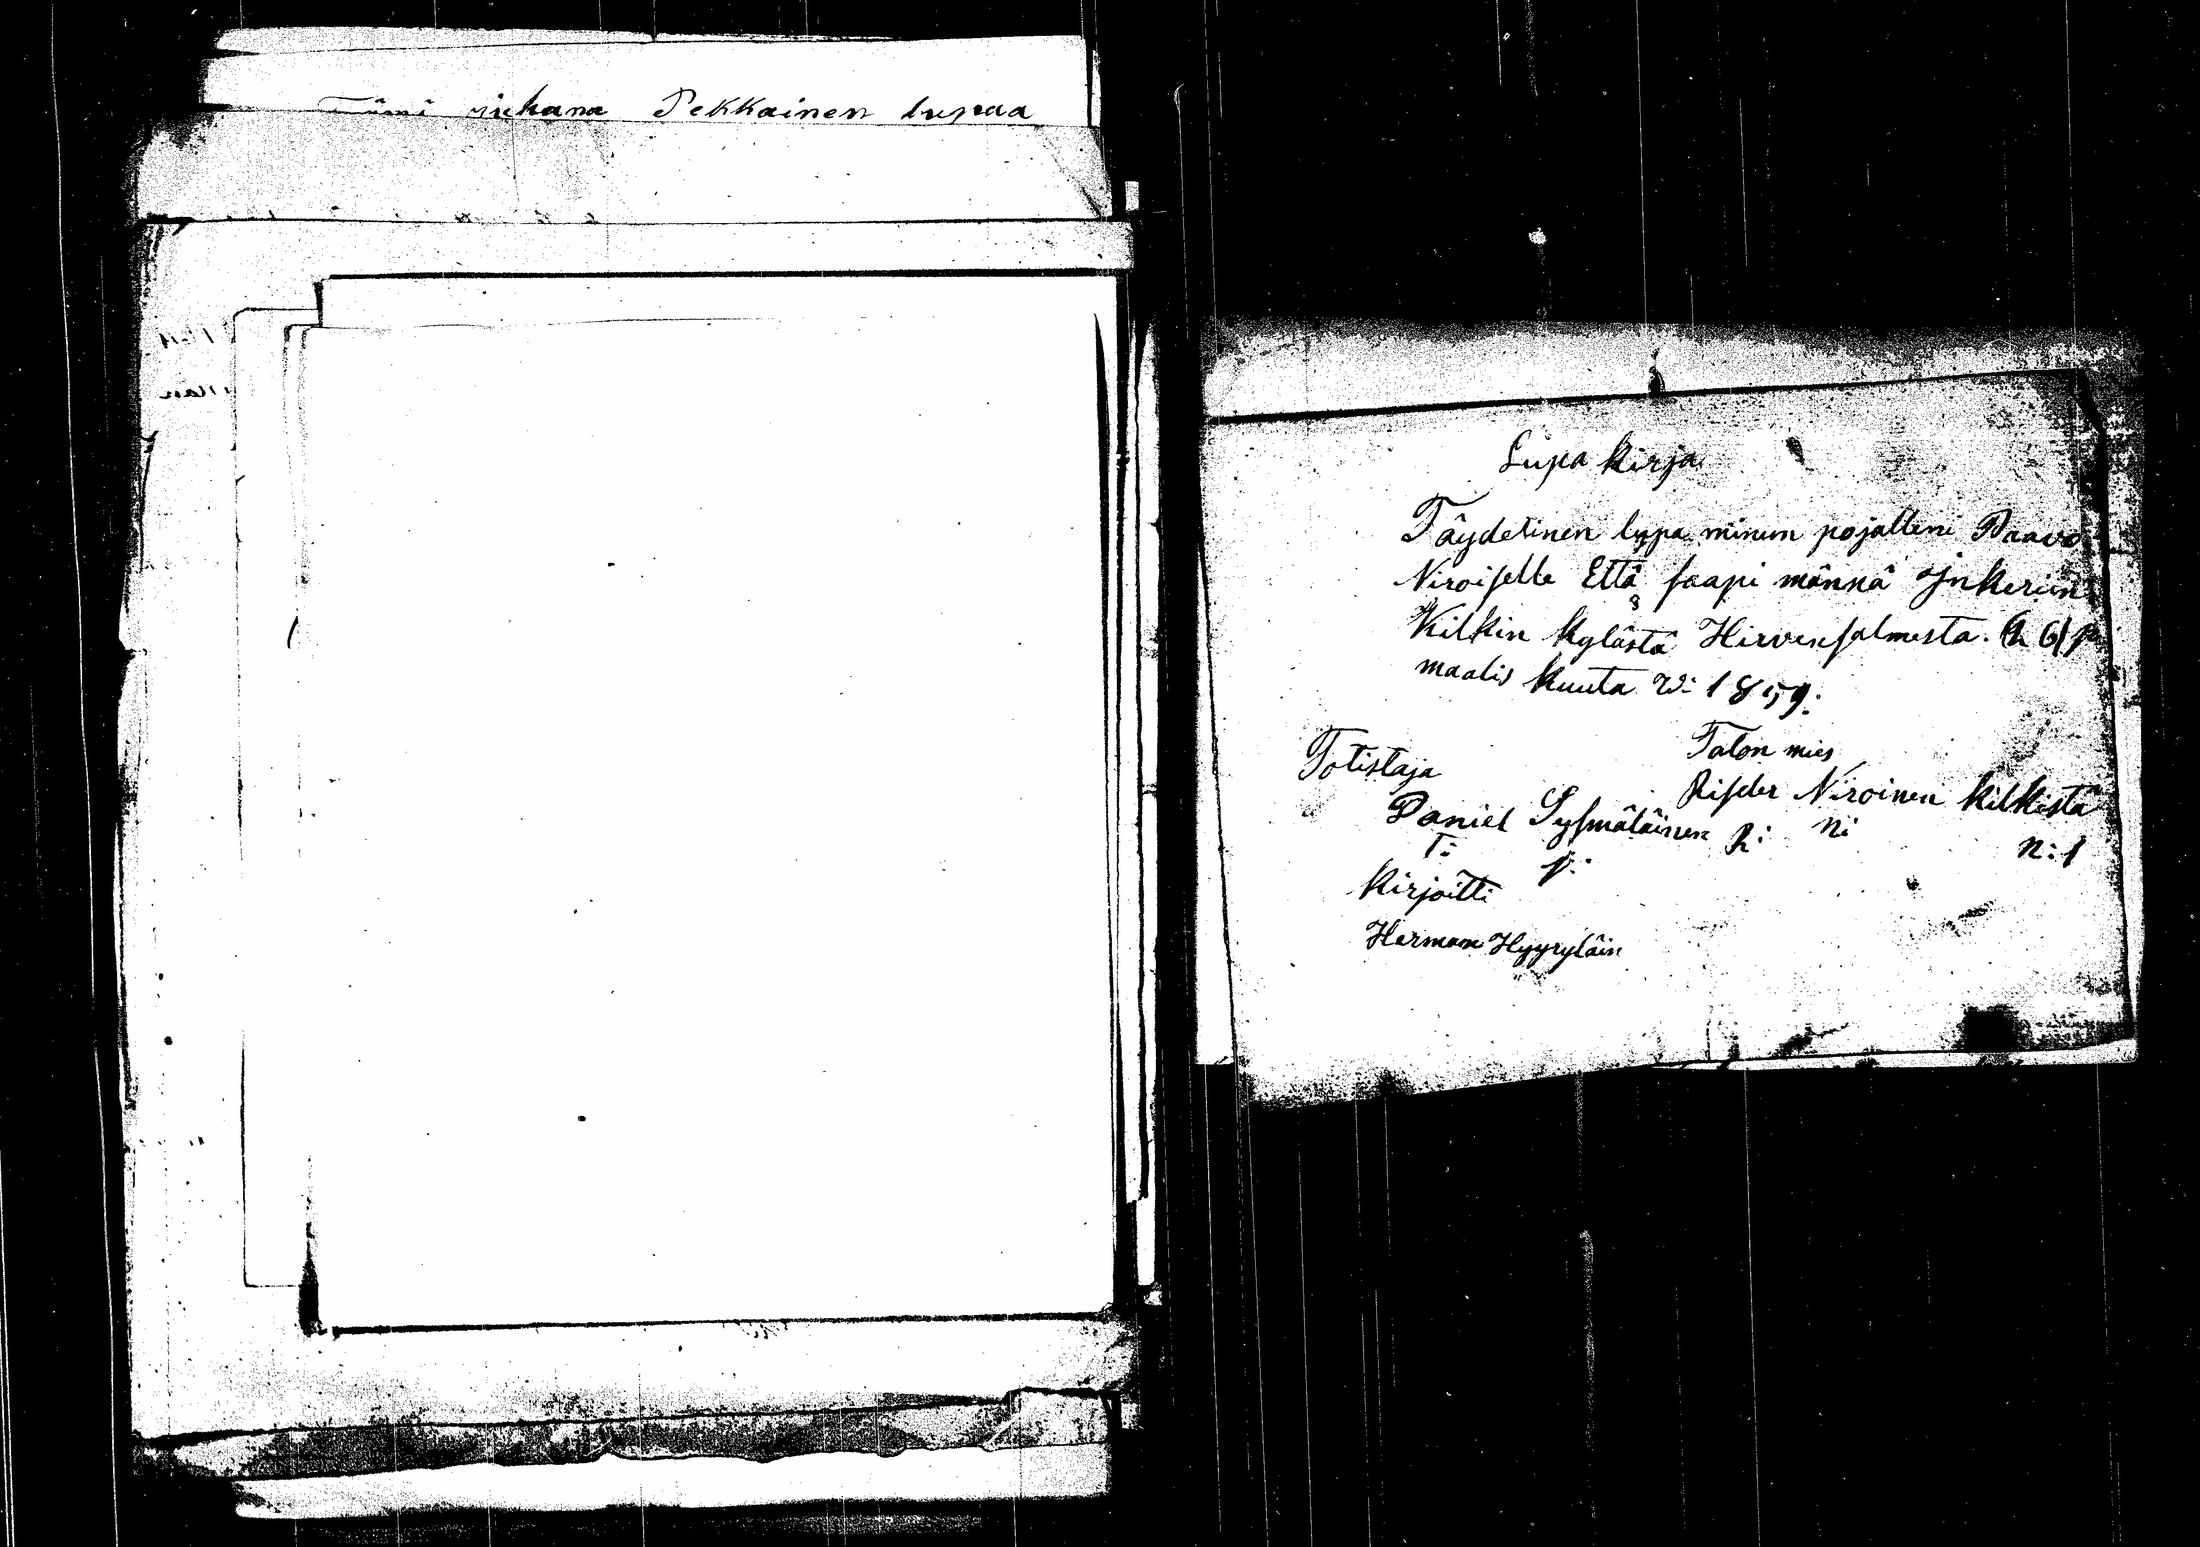 Tämä riehana Pekkainen lupaa
Lupa kirja
Täydelinen lupa minun pojalleni Paavo
Niroiselle Että saapi männä Jnkeriin
Kilkin kylästä Hirvensalmesta. 6/
maalis kuuta w: 1859:
Talon mies
Totistaja
Risder Niroinen kilkistä
Daniel Sysmäläinen R: Ni
T: n:1
Kirjoitti
Herman Hyyryläin